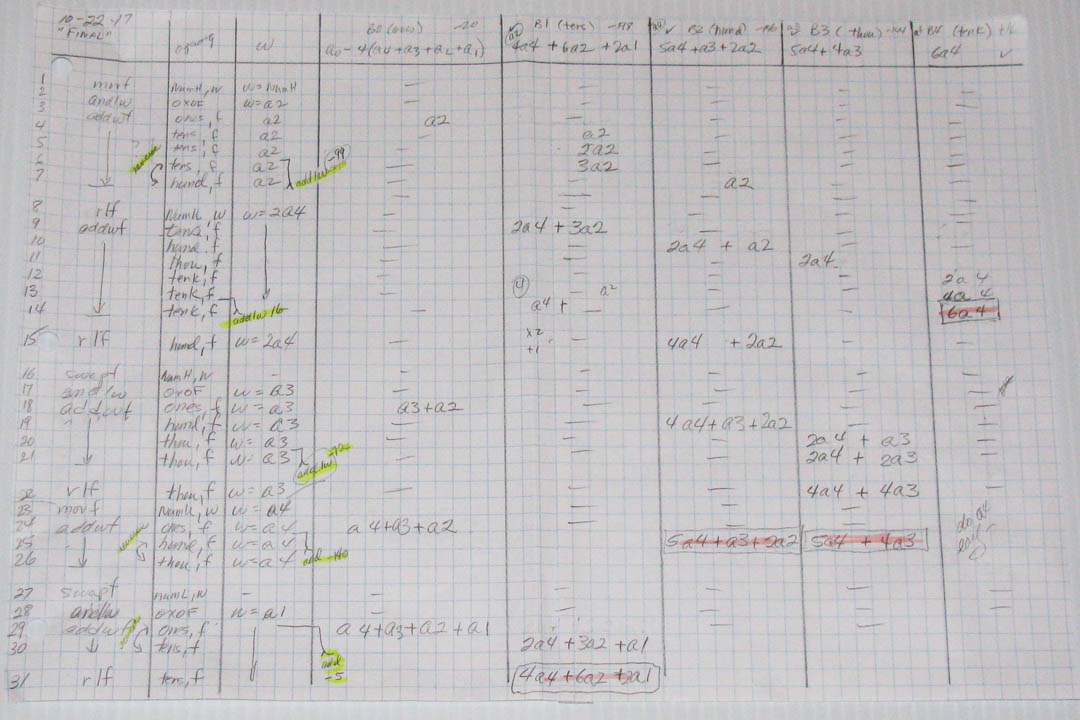 10-22-17
"FINAL"
w
B0 (ones) -20
a0 - 4(a4 + a3 + a2 + a1)
B1 (tens)
4a4 + 6a2 + 2a1
B2 (hund)
5a4 + a3 + 2a2
B3 (thou)
5a4 + 4a3
B4 (tenk)
6a4 ✓
1
2 movf NumH, w w = NumH — — — — —
3 andlw 0x0F w = a2 — — — — —
4 addwf ones, f a2 a2 — — — —
5 tens, f a2 — a2 — — —
tens, f a2 — 2a2 — — —
6 tens, f a2 addlw -99 — 3a2 — — —
7 hund, f a2 — — a2 — —
8 rlf NumL, w w = 2a4 — — — — —
9 addwf tens, f — 2a4 + 3a2 — — —
10 hund, f — — 2a4 + a2 — —
11 thou, f — — — 2a4 —
12 tenk, f — — — — 2a4
13 tenk, f — — — 4a4
14 tenk, f addlw 16 — a4 + — — — 6a4
15 rlf hund, f w = 2a4 — x2 +1 4a4 + 2a2 — —
16 swapf NumH, w - — — — — —
17 andlw 0x0F w = a3 — — — — —
18 addwf ones, f w = a3 a3 + a2 — — — —
19 hund, f w = a3 — — 4a4 + a3 + 2a2 — —
20 thou, f w = a3 — — — 2a4 + a3 —
21 thou, f w = a3 addlw — — — 2a4 + 2a3 —
22 rlf thou, f w = a3 — — — 4a4 + 4a3 —
23 movf NumL, w w = a4 — — —
24 addwf ones, f w = a4 a4 + a3 + a2 — — — do a4
25 hund, f w = a4 5a4 + a3 + 2a2 5a4 + 4a3
26 thou, f w = a4 add -140
27 swapf NumL, w - — — — — —
28 andlw 0x0F w = a1 — — — — —
29 addwf ones, f a4 + a3 + a2 + a1 — — — —
30 tens, f 2a4 + 3a2 + a1
add
-5
31 rlf tens, f 4a4 + 6a2 + 2a1